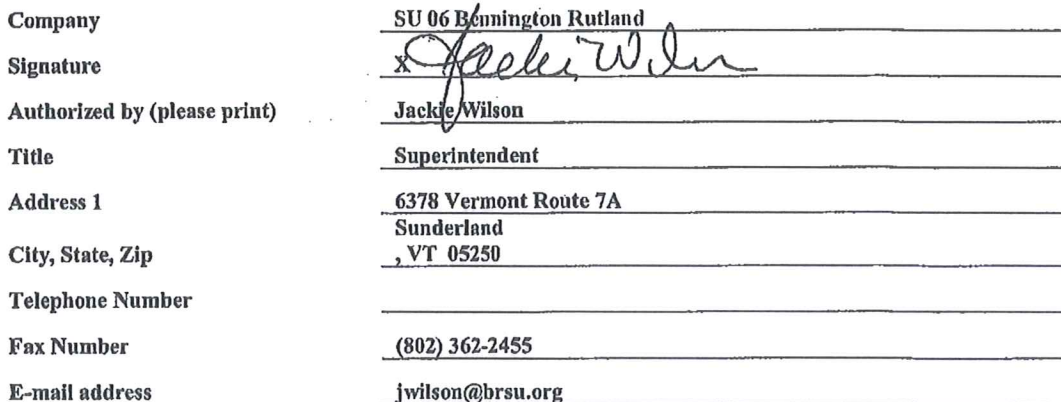 Company SU 06 Bennington Rutland
Signature X Jacki Wilson
Authorized by (please print) Jackie Wilson
Title Superintendent
Address 1 6378 Vermont Route 7A
Sunderland
City, State, Zip , VT 05250
Telephone Number
Fax Number (802) 362-2455
E-mail address jwilson@brsu.org